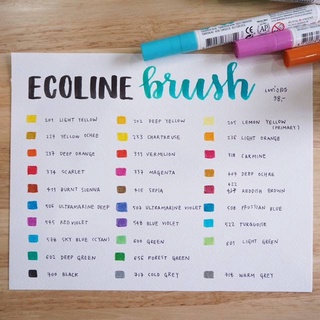 ECOLINE brush
201 LIGHT YELLOW 202 DEEP YELLOW 205 LEMON YELLOW (PRIMARY)
227 YELLOW OCHRE 233 CHARTREUSE 236 LIGHT ORANGE
237 DEEP ORANGE 311 VERMILION 318 CARMINE
334 SCARLET 337 MAGENTA 407 DEEP OCHRE
411 BURNT SIENNA 416 SEPIA 422 REDDISH BROWN
506 ULTRAMARINE DEEP 507 ULTRAMARINE VIOLET 508 PRUSSIAN BLUE
545 RED VIOLET 548 BLUE VIOLET 522 TURQUOISE
578 SKY BLUE (CYAN) 600 GREEN 601 LIGHT GREEN
602 DEEP GREEN 656 FOREST GREEN
700 BLACK 717 COLD GREY 718 WARM GREY